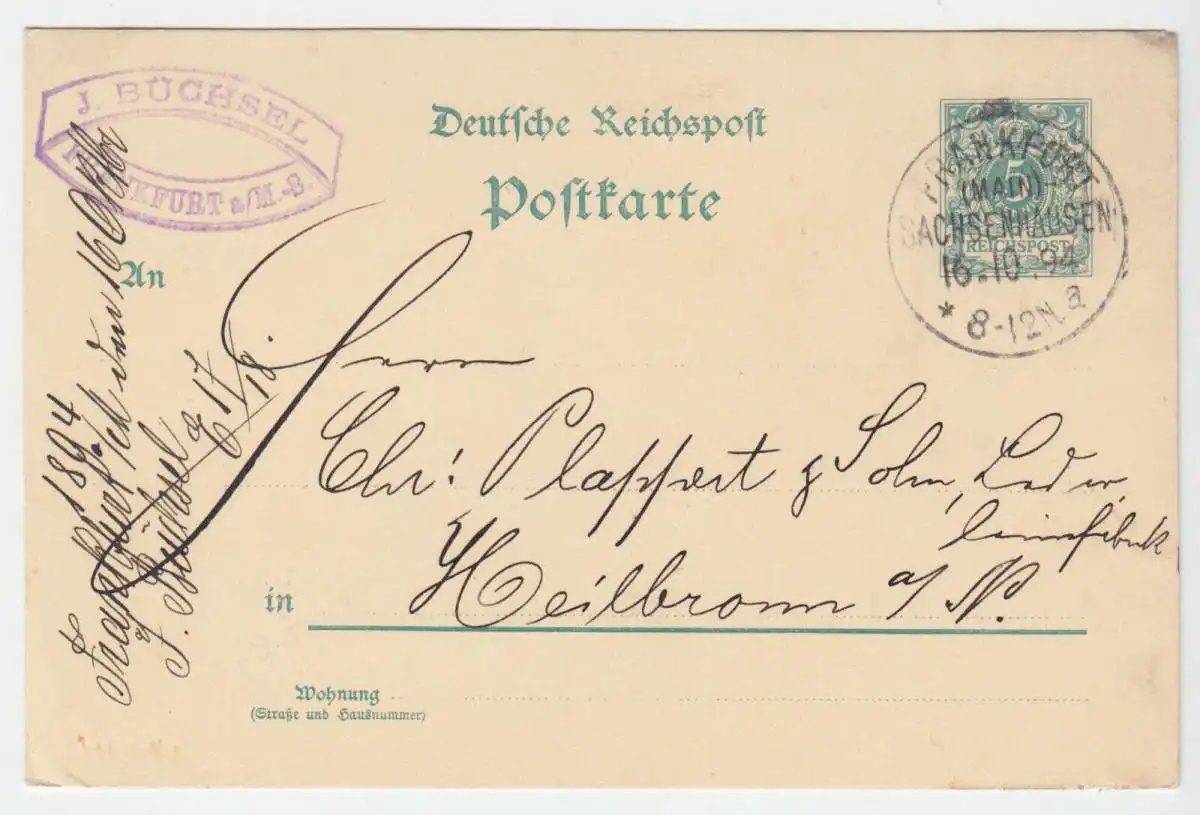 J. BÜCHSEL
FRANKFURT a/M.-S.
Deutsche Reichspost
Postkarte
5
REICHSPOST
FRANKFURT
(MAIN)-
SACHSENHAUSEN
16.10.94
* 8-12N. a
An
Herrn
Chr: Plappert & Sohn, Leder,
leimfabrik
in Heilbronn a/N.
Wohnung
(Straße und Hausnummer)
Frankfurt a/M den 16 Oktbr
1894
J. Büchsel
17/18.